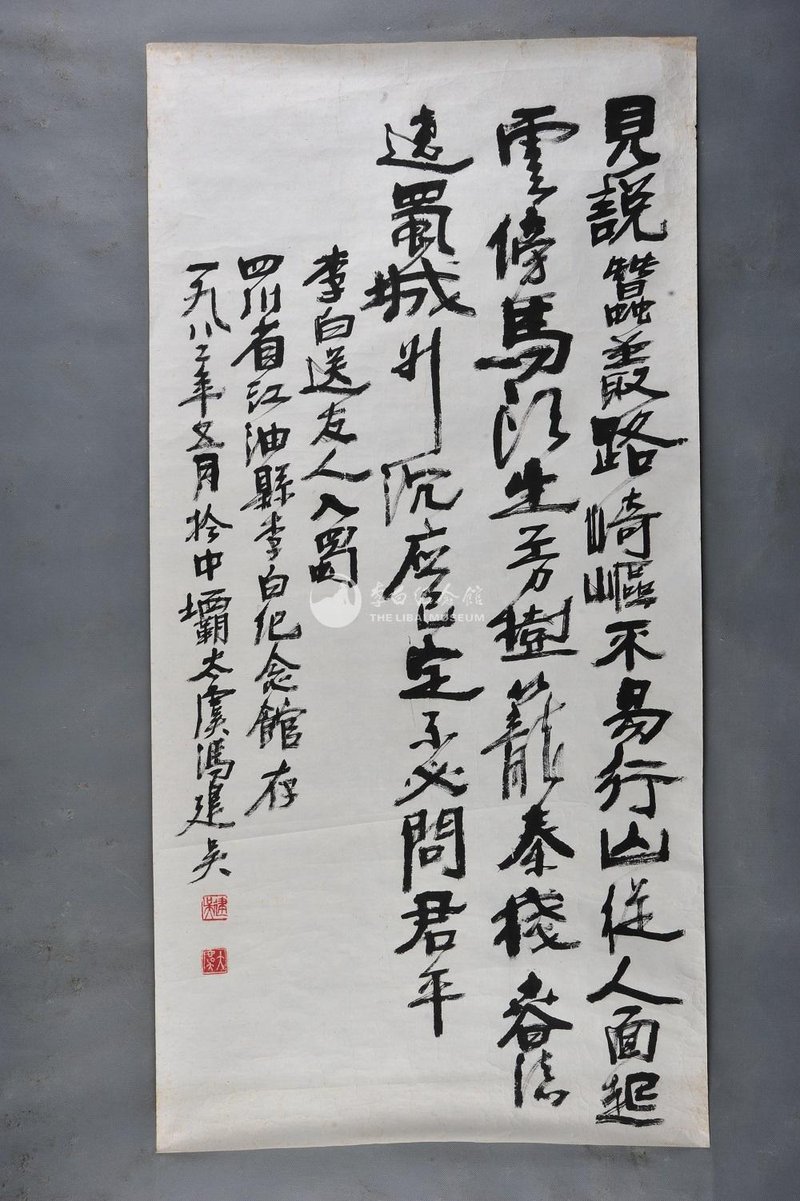 見説蠶叢路崎嶇不易行山從人面起
雲傍馬頭生芳樹籠秦棧春流
遶蜀城升沉应已定不必問君平
李白送友人入蜀
四川省江油縣李白纪念館存
一九八二年五月於中壩太虞馮建吴
李白纪念館
THE LIBAI MUSEUM